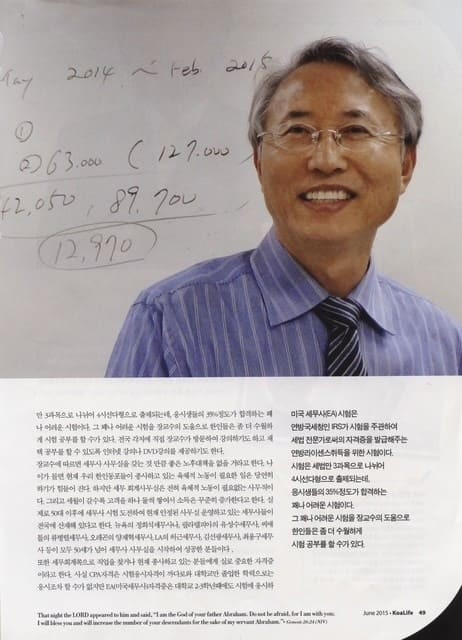 May 2014 ~ Feb. 2015
①
② 63.000 ( 127.000 )
42,050 , 89,700
12,970
만 3과목으로 나뉘어 4시선다형으로 출제되는데, 응시생들의 35%정도가 합격하는 꽤
나 어려운 시험이다. 그 꽤나 어려운 시험을 장교수의 도움으로 한인들은 좀 더 수월하
게 시험 공부를 할 수가 있다. 전국 각지에 직접 장교수가 방문하여 강의하기도 하고 재
택 공부를 할 수 있도록 인터넷 강의나 DVD강의를 제공하기도 한다.
장교수에 따르면 세무사 사무실을 갖는 것 만큼 좋은 노후대책을 없을 거라고 한다. 나
이가 들면 현재 우리 한인동포들이 종사하고 있는 육체적 노동이 필요한 일은 당연히
하기가 힘들어 진다. 하지만 세무 회계사무실은 전혀 육체적 노동이 필요없는 사무직이
다. 그리고 세월이 갈수록 고객을 하나 둘씩 쌓이서 소득은 꾸준히 증가한다고 한다. 실
제로 50대 이후에 세무사 시험 도전하여 현재 안정된 사무실 운영하고 있는 세무사들이
전국에 산재해 있다고 한다. 뉴욕의 정회석세무사나, 필라델피아의 유성수세무사, 커네
들의 류병렬세무사, 오래곤의 양재혁세무사, LA의 허근세무사, 김선광세무사, 최윤구세무
사 등이 모두 50세가 넘어 세무사 사무실을 시작하여 성공한 분들이다.
또한 세무회계쪽으로 직업을 찾거나 현재 종사하고 있는 분들에게 실로 중요한 자격증
이라고 한다. 사실 CPA자격은 시험응시자격이 까다로와 대학교만 졸업한 학력으로는
응시조차 할 수가 없지만 EA(미국세무사)자격증은 대학교 2-3학년때에도 시험에 응시하
미국 세무사(EA) 시험은
연방국세청인 IRS가 시험을 주관하여
세법 전문가로써의 자격증을 발급해주는
연방라이센스취득을 위한 시험이다.
시험은 세법만 3과목으로 나뉘어
4시선다형으로 출제되는데,
응시생들의 35%정도가 합격하는
꽤나 어려운 시험이다.
그 꽤나 어려운 시험을 장교수의 도움으로
한인들은 좀 더 수월하게
시험 공부를 할 수가 있다.
That night the LORD appeared to him and said, "I am the God of your father Abraham. Do not be afraid, for I am with you;
I will bless you and will increase the number of your descendants for the sake of my servant Abraham." - Genesis 26:24 (NIV)
June 2015 • KoaLife 49